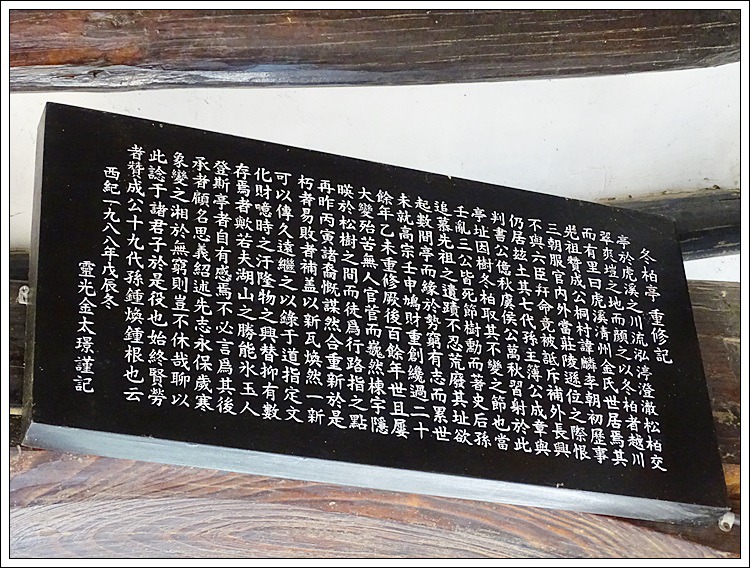 冬柏亭重修記
亭於虎溪之川流泓渟澄澈松柏交
翠爽塏之地而顔之以冬柏者越川
而有里曰虎溪清州金氏世居焉其
先祖贊成公桐村諱麟李朝初歷事
三朝服官內外當莊陵遜位之際恨
不與六臣幷命竟被詆斥補外長興
仍居玆土其七代孫主簿公成章與
判書公億秋虞侯公萬秋習射於此
亭址因樹冬柏取其不變之節也當
壬亂三公皆死節樹勳而著史后孫
追慕先祖之遺蹟不忍荒廢其址欲
起數間亭而緣於勢窮有志而累世
未就高宗壬申鳩財重創纔過二十
餘年乙未重修厥後百餘年世且屢
大變殆苦無人官管而巍然棟宇隱
暎於松樹之間而徒爲行路指之點
再昨丙寅諸裔慨謀然合重新於是
朽者易敗者補蓋以新瓦煥然一新
可以傳久遠繼之以錄于道指定文
化財噫時之汙隆物之興替抑有數
存焉者歟若夫湖山之勝能氷玉人
登斯亭者自有感焉不必言爲其後
承者顧名思義紹述先志永保歲寒
象變之湘於無窮則豈不休哉聊以
此諗于諸君子於是役也始終賢勞
者贊成公十九代孫鍾煥鍾根也云
西紀一九八八年戊辰冬
靈光金太璟謹記